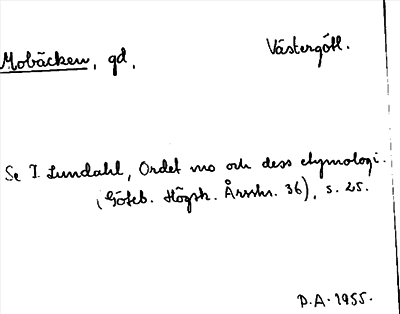 Mobäcken, gd, Västergötl.
Se I. Lundahl, Ordet mo och dess etymologi.
(Göteb. Högsk. Årsskr. 36), s. 25.
D.A. 1955.